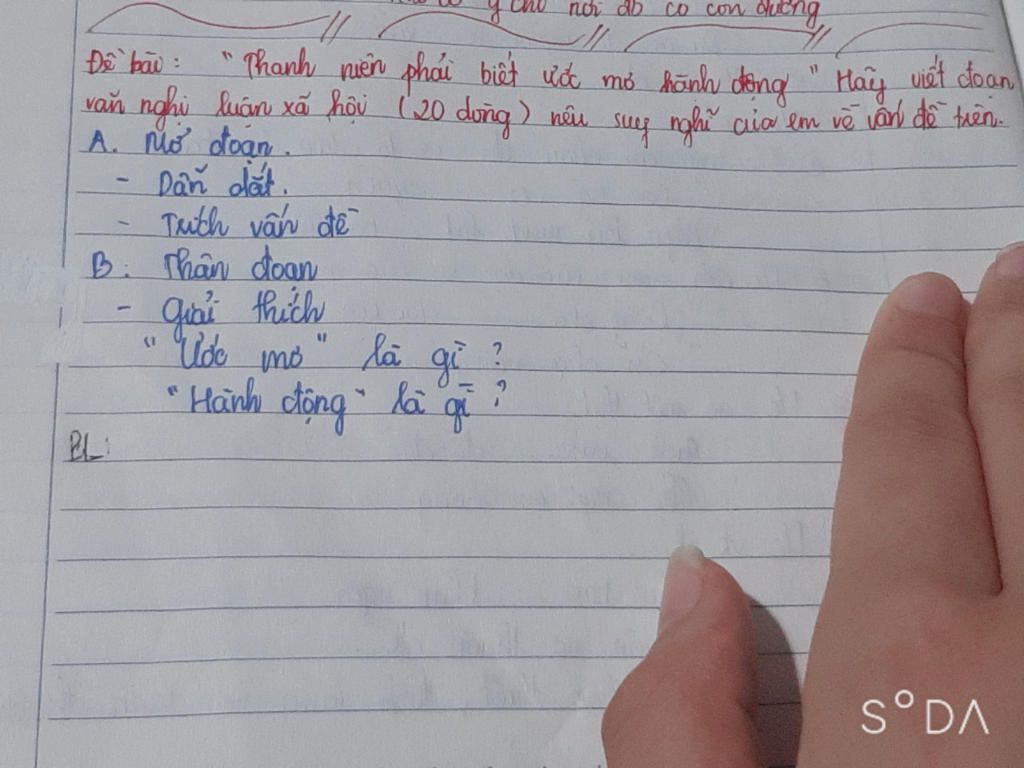 ý cho nơi đó có con đường
Đề bài: "Thanh niên phải biết ước mơ hành động" Hãy viết đoạn
văn nghị luận xã hội (20 dòng) nêu suy nghĩ của em về vấn đề trên.
A. Mở đoạn.
- Dẫn dắt.
- Trích vấn đề
B. Thân đoạn
- Giải thích
"Ước mơ" là gì?
"Hành động" là gì?
BL:
S°DA